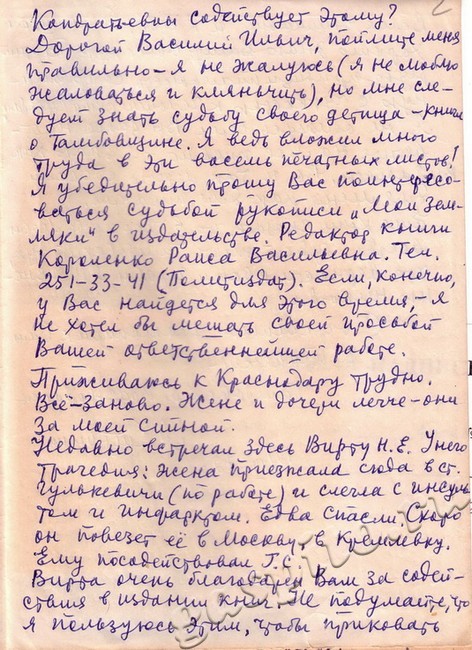 2
Кондратьевны содействует этому?
Дорогой Василий Ильич, поймите меня
правильно – я не жалуюсь (я не люблю
жаловаться и клянчить), но мне сле-
дует знать судьбу своего детища – книги
о Тамбовщине. Я ведь вложил много
труда в эти восемь печатных листов!
Я убедительно прошу Вас поинтересо-
ваться судьбой рукописи „Мои зем-
ляки" в издательстве. Редактор книги
Короленко Раиса Васильевна. Тел.
251-33-41 (Политиздат). Если, конечно,
у Вас найдется для этого время, – я
не хотел бы мешать своей просьбой
Вашей ответственнейшей работе.
Приживаюсь к Краснодару трудно.
Всё – заново. Жене и дочери легче – они
за моей спиной.
Недавно встречал здесь Вирту Н.Е. У него
трагедия: жена приезжала сюда в ст.
Гулькевичи (по работе) и слегла с инсуль-
том и инфарктом. Едва спасли. Скоро
он повезет её в Москву, в Кремлевку.
Ему посодействовал Г.С.
Вирта очень благодарен Вам за содей-
ствия в издании книг. Не подумайте, что
я пользуюсь этим, чтобы приковать